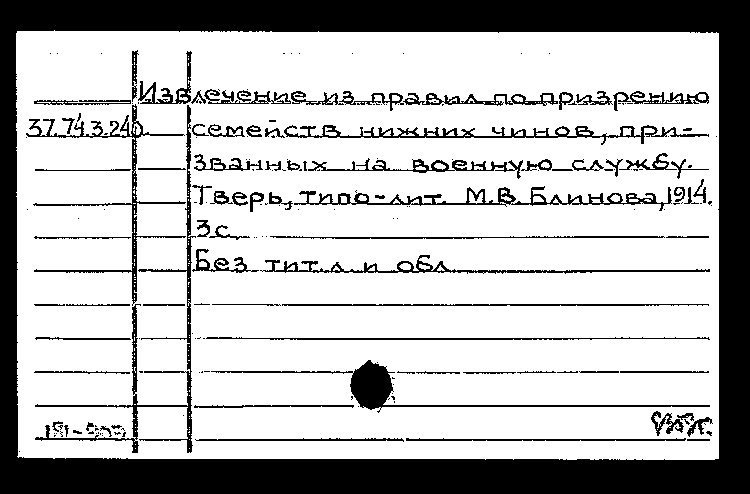 Извлечение из правил по призрению
37.74.3.240. семейств нижних чинов, при-
званных на военную службу.
Тверь, типо-лит. М.В. Блинова, 1914.
3с.
Без тит. л. и обл